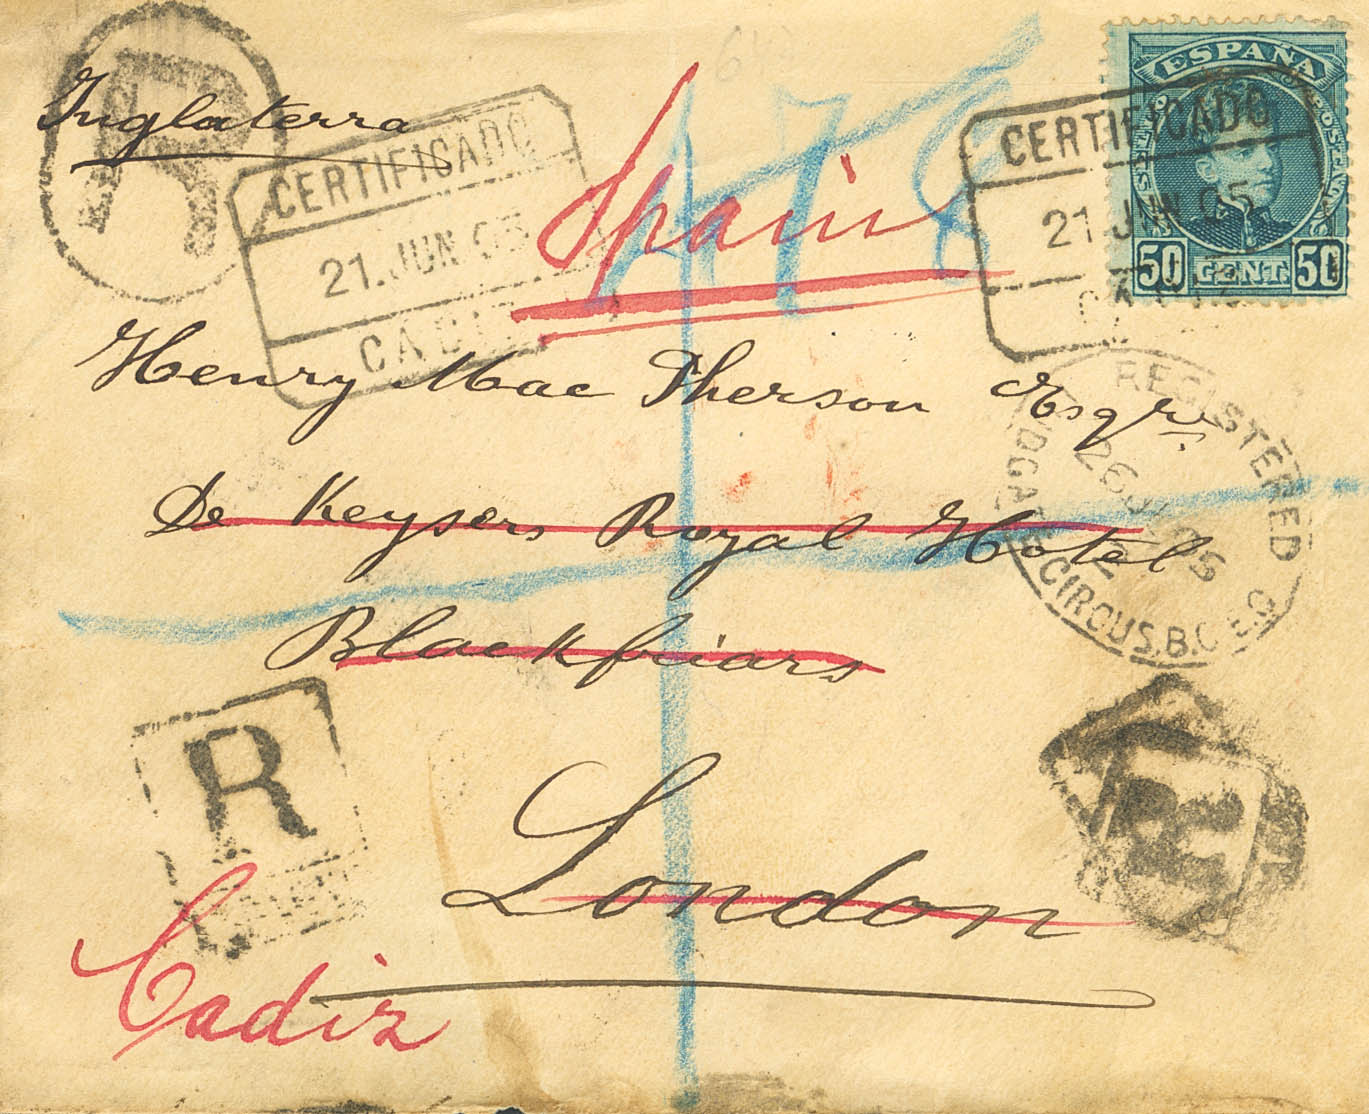 R
Inglaterra
CERTIFICADO
21.JUN.05
CADIZ
Spain
478
ESPAÑA
50 CENT 50
CERTIFICADO
21.JUN.05
CADIZ
Henry Mac Pherson Esqre.
De Keysers Royal Hotel
Blackfriars
London
REGISTERED
LUDGATE CIRCUS.B.O. E.C.
R
R
Cadiz